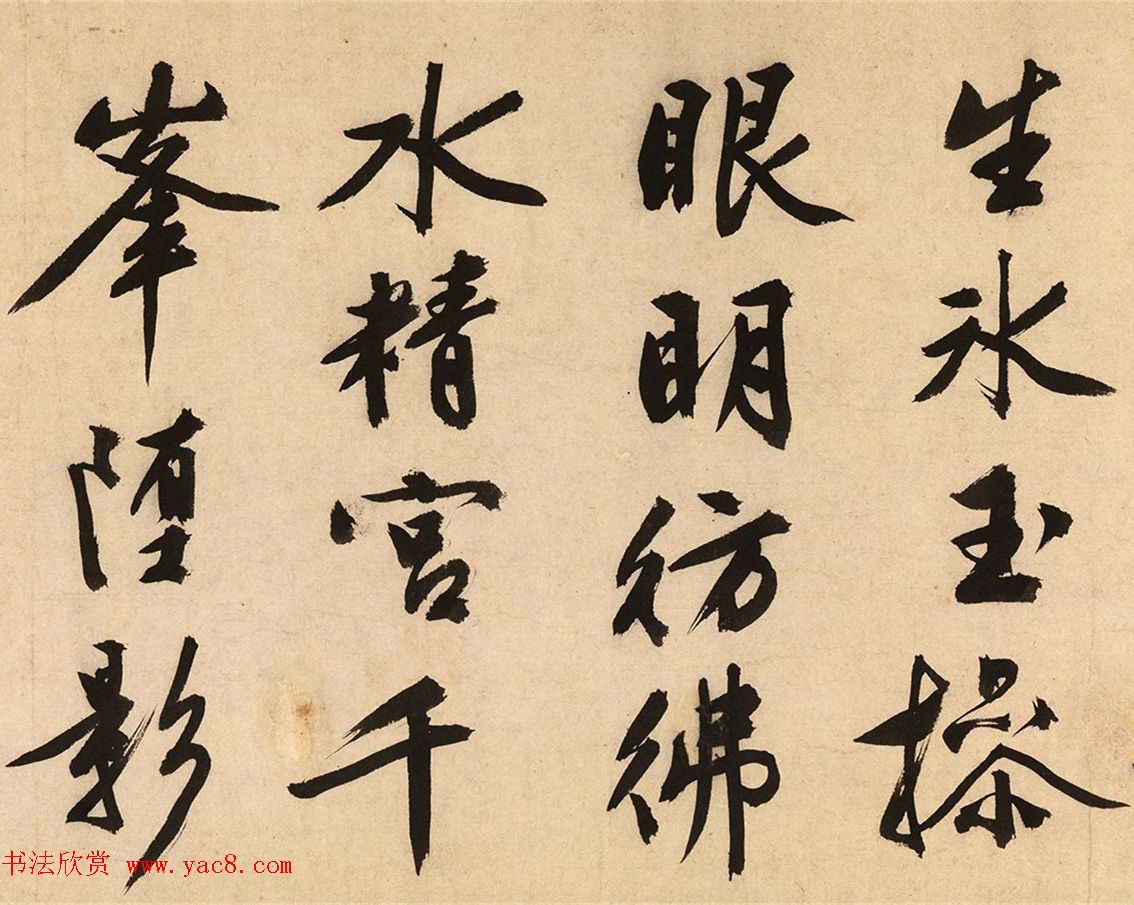 生冰玉操
眼明彷彿
水精宮千
峯堕影
书法欣赏 www.yac8.com